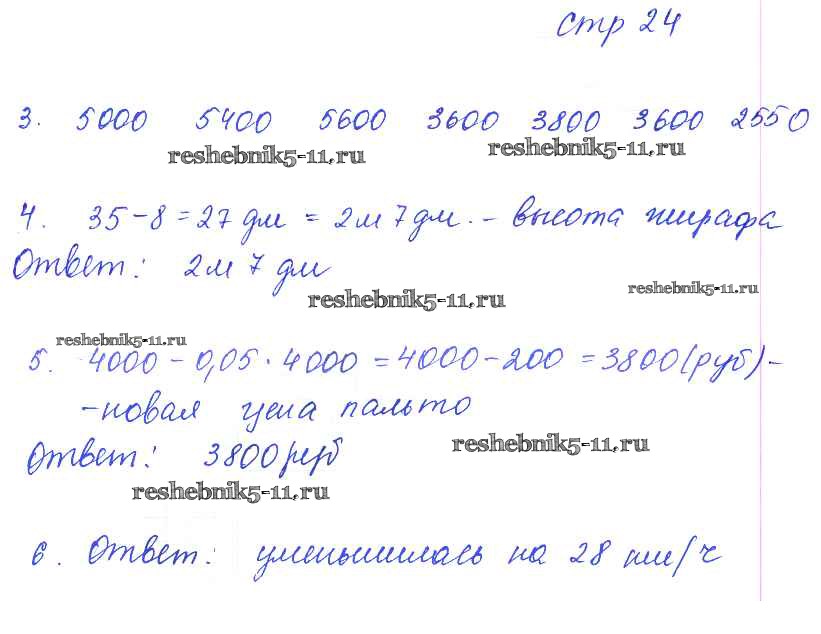 стр 24
3. 5000 5400 5600 3600 3800 3600 2550
reshebnik5-11.ru reshebnik5-11.ru
4. 35-8=27 дм = 2м 7 дм. - высота жирафа
Ответ: 2м 7 дм
reshebnik5-11.ru reshebnik5-11.ru
reshebnik5-11.ru
5. 4000 - 0,05 · 4000 = 4000 - 200 = 3800 (руб) -
- новая цена пальто
Ответ: 3800 руб
reshebnik5-11.ru
reshebnik5-11.ru
6. Ответ: уменьшилась на 28 км/ч